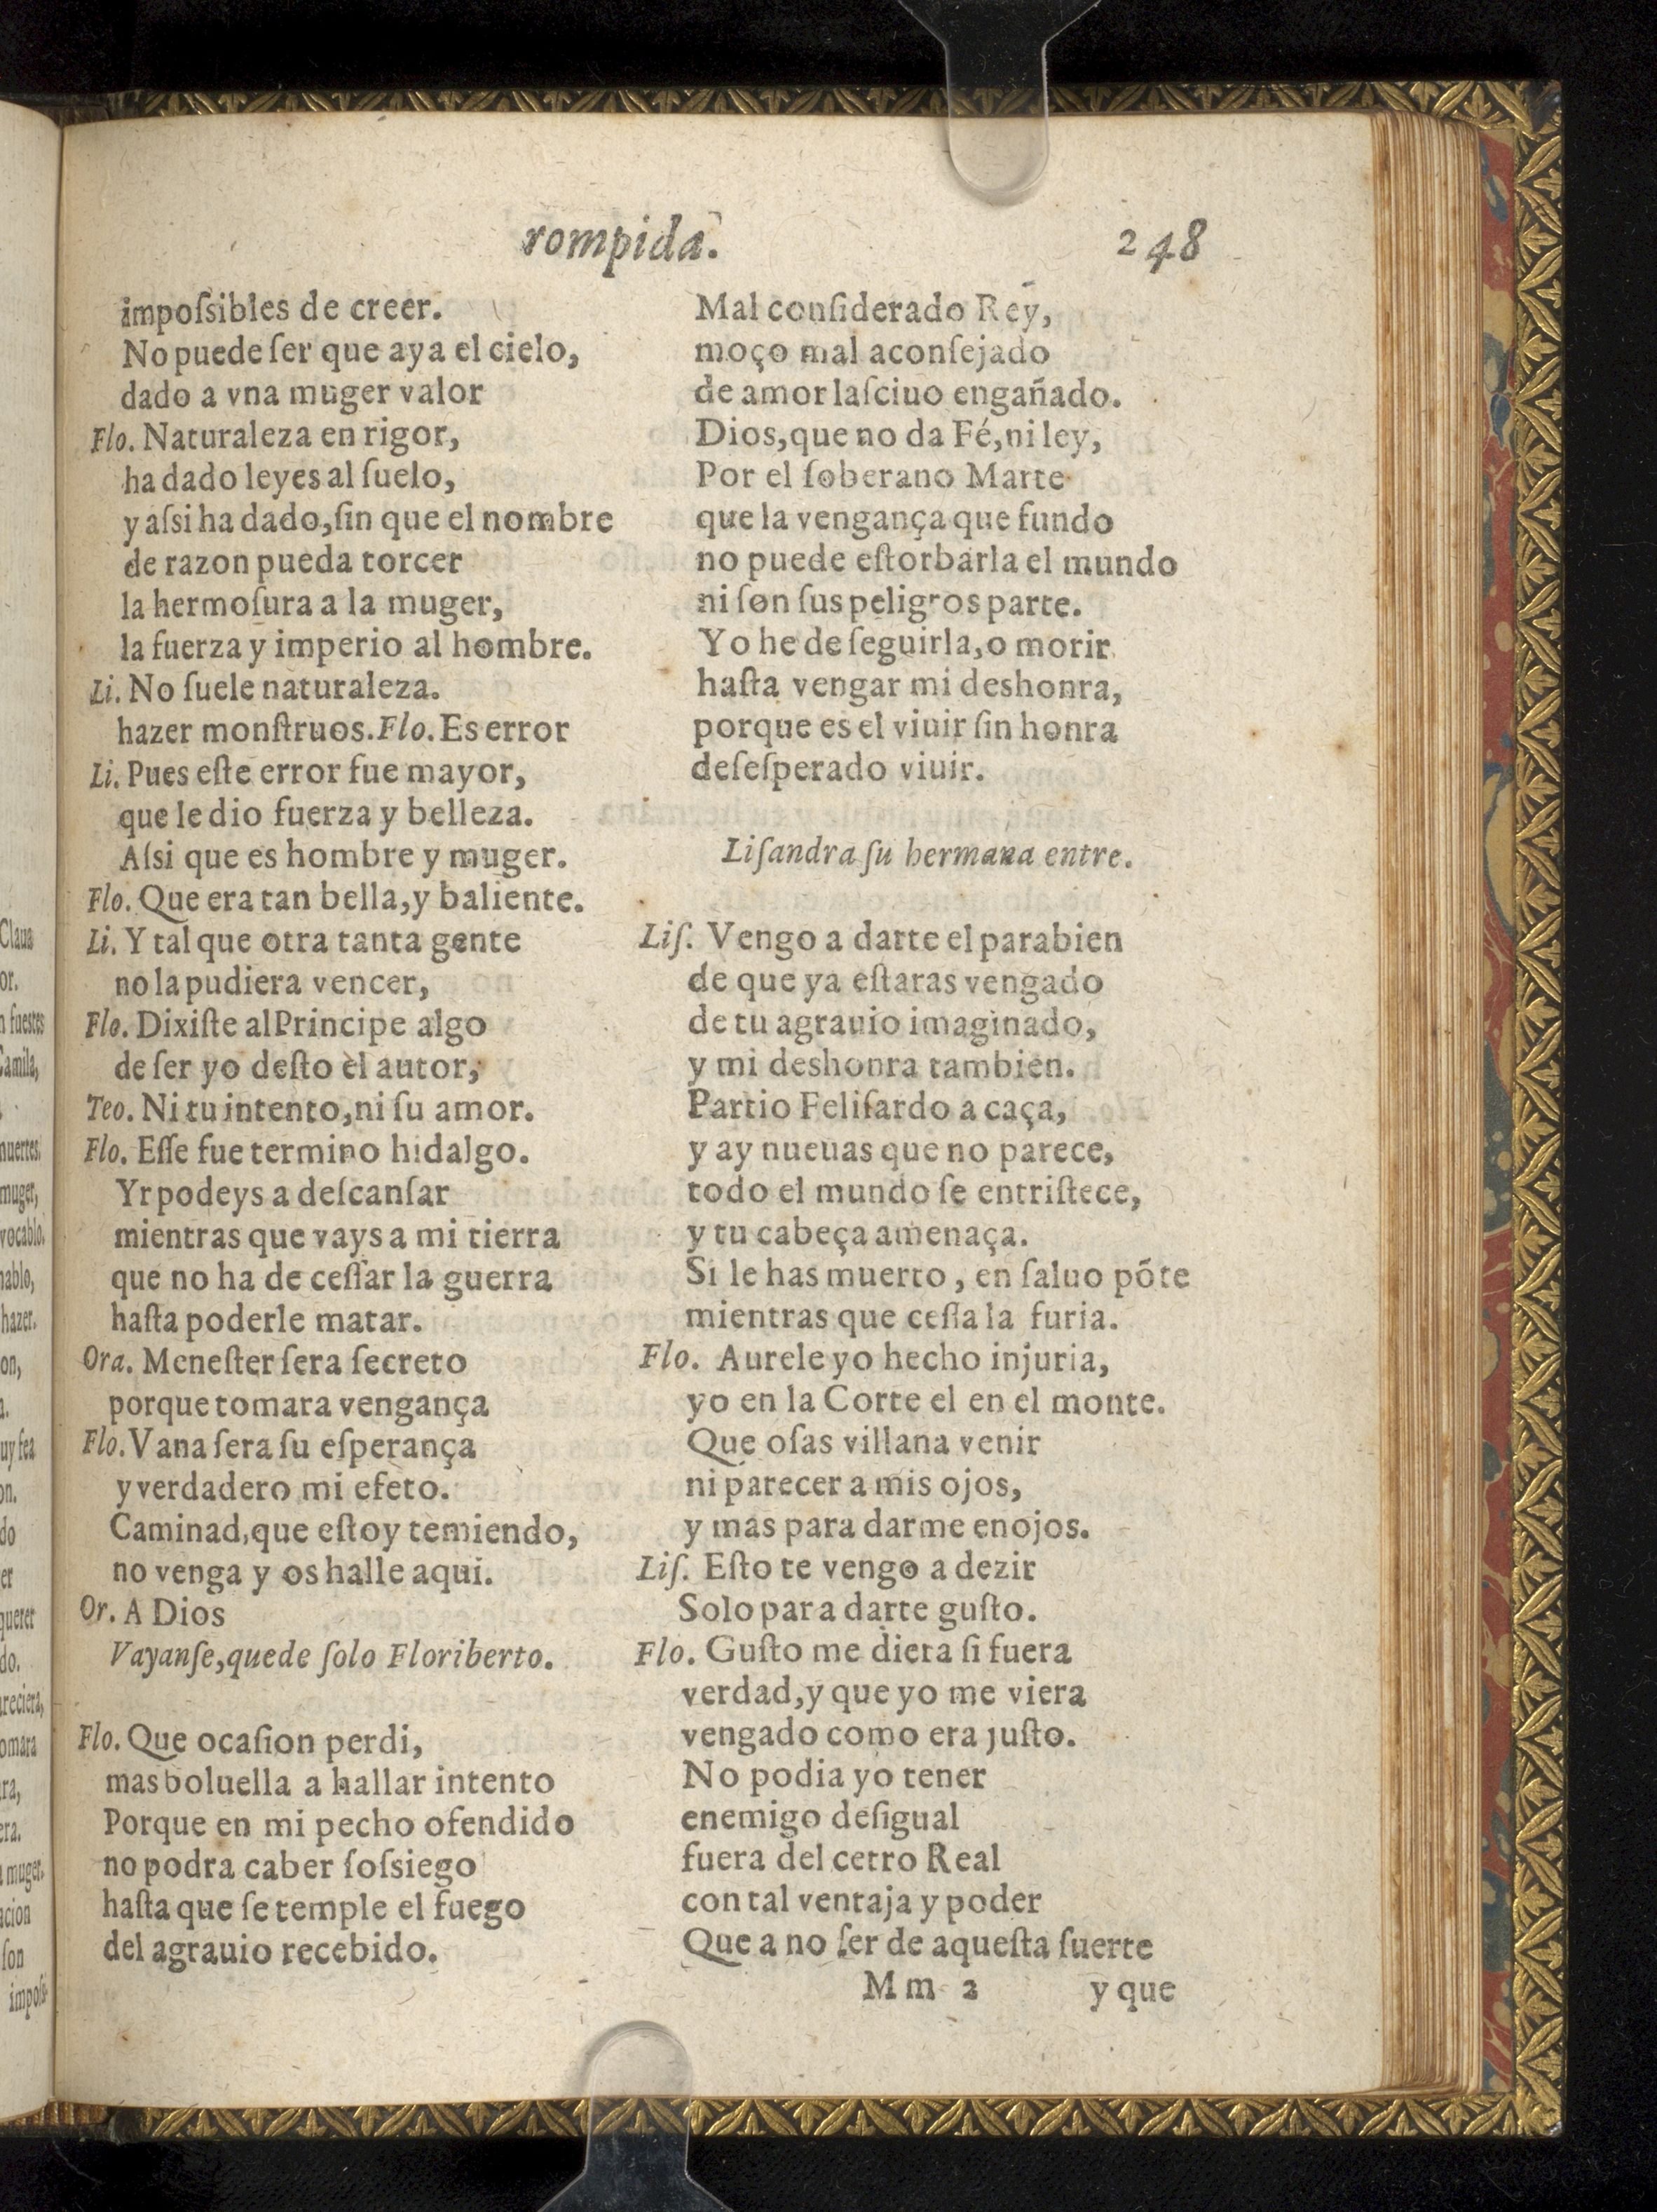 rompida. 248
impoſsibles de creer.
No puede ſer que aya el cielo,
dado a vna muger valor
Flo. Naturaleza en rigor,
ha dado leyes al ſuelo,
y aſsi ha dado, ſin que el nombre
de razon pueda torcer
la hermoſura a la muger,
la fuerza y imperio al hombre.
Li. No ſuele naturaleza.
hazer monſtruos. Flo. Es error
Li. Pues eſte error fue mayor,
que le dio fuerza y belleza.
Aſsi que es hombre y muger.
Flo. Que era tan bella, y baliente.
Li. Y tal que otra tanta gente
no la pudiera vencer,
Flo. Dixiſte al Principe algo
de ſer yo deſto el autor,
Teo. Ni tu intento, ni ſu amor.
Flo. Eſſe fue termino hidalgo.
Yr podeys a deſcanſar
mientras que vays a mi tierra
que no ha de ceſſar la guerra
haſta poderle matar.
Ora. Meneſter ſera ſecreto
porque tomara vengança
Flo. Vana ſera ſu eſperança
y verdadero mi efeto.
Caminad, que eſtoy temiendo,
no venga y os halle aqui.
Or. A Dios
Vayanſe, quede ſolo Floriberto.
Flo. Que ocaſion perdi,
mas boluella a hallar intento
Porque en mi pecho ofendido
no podra caber ſoſsiego
haſta que ſe temple el fuego
del agrauio recebido.
Mal conſiderado Rey,
moço mal aconſejado
de amor laſciuo engañado.
Dios, que no da Fé, ni ley,
Por el ſoberano Marte
que la vengança que fundo
no puede eſtorbarla el mundo
ni ſon ſus peligros parte.
Yo he de ſeguirla, o morir
haſta vengar mi deshonra,
porque es el viuir ſin honra
deſeſperado viuir.
Liſandra ſu hermana entre.
Liſ. Vengo a darte el parabien
de que ya eſtaras vengado
de tu agrauio imaginado,
y mi deshonra tambien.
Partio Feliſardo a caça,
y ay nueuas que no parece,
todo el mundo ſe entriſtece,
y tu cabeça amenaça.
Si le has muerto, en ſaluo põte
mientras que ceſſa la furia.
Flo. Aurele yo hecho injuria,
yo en la Corte el en el monte.
Que oſas villana venir
ni parecer a mis ojos,
y mas para darme enojos.
Liſ. Eſto te vengo a dezir
Solo para darte guſto.
Flo. Guſto me diera ſi fuera
verdad, y que yo me viera
vengado como era juſto.
No podia yo tener
enemigo deſigual
fuera del cetro Real
con tal ventaja y poder
Que a no ſer de aqueſta ſuerte
Mm 2 y que